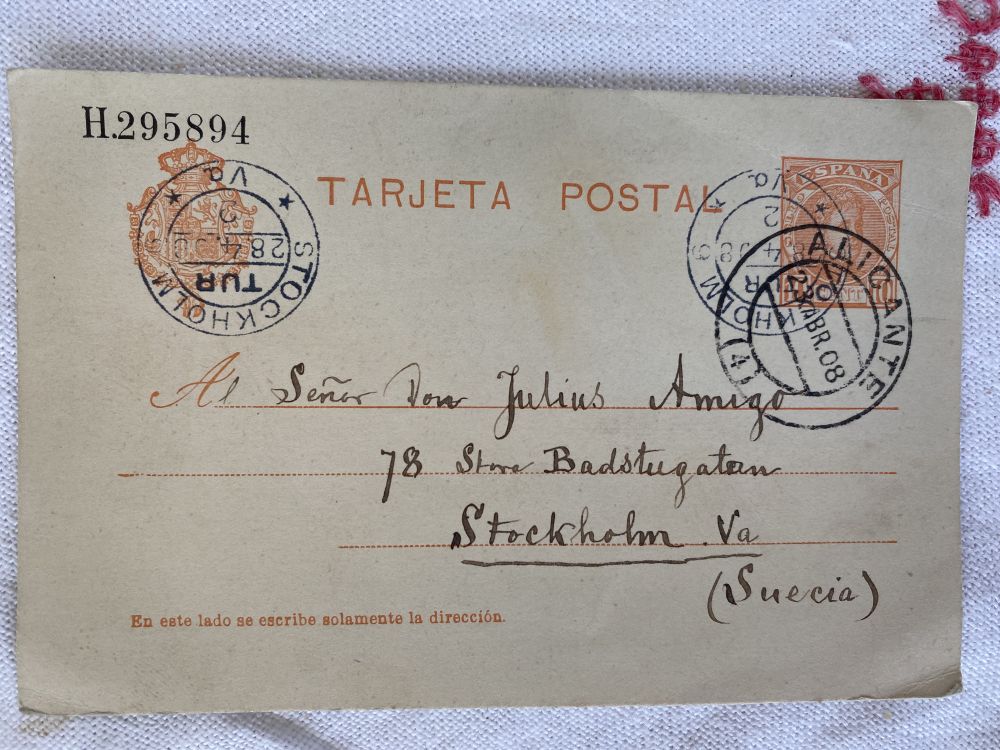 H.295894
TARJETA POSTAL
ESPAÑA
STOCKHOLM
TUR
28 4
Va
ALICANTE
23 ABR.08
(4)
Al Señor Don Julius Amigo
78 Stora Badstugatan
Stockholm Va
(Suecia)
En este lado se escribe solamente la dirección.